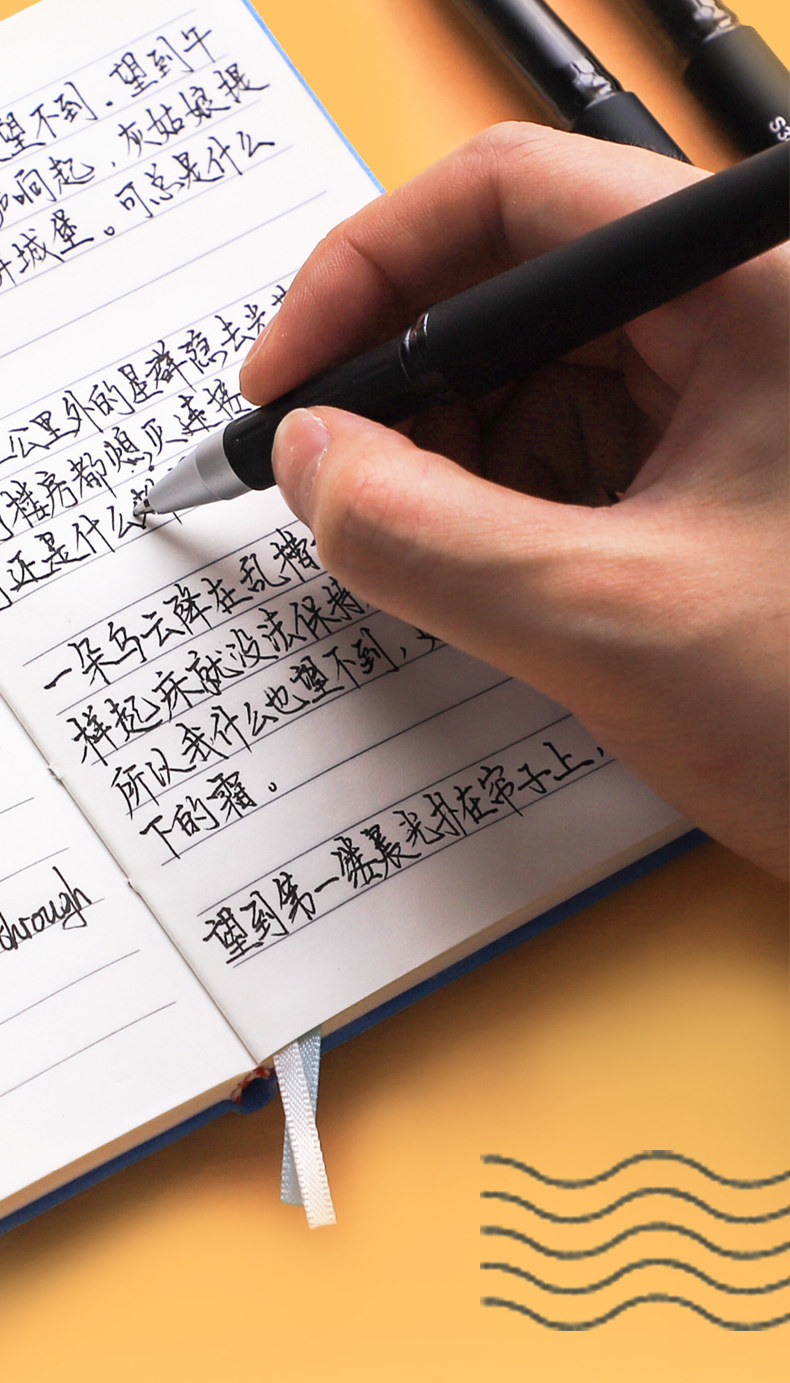 望不到．望到午
响起，灰姑娘提
城堡。可总是什么
公里外的星群隐去光
楼房都熄灭连接
还是什么
一朵乌云降在乱糟
样起床就没法保持
所以我什么也望不到，
下的霜。
望到第一缕晨光扑在帘子上，
through